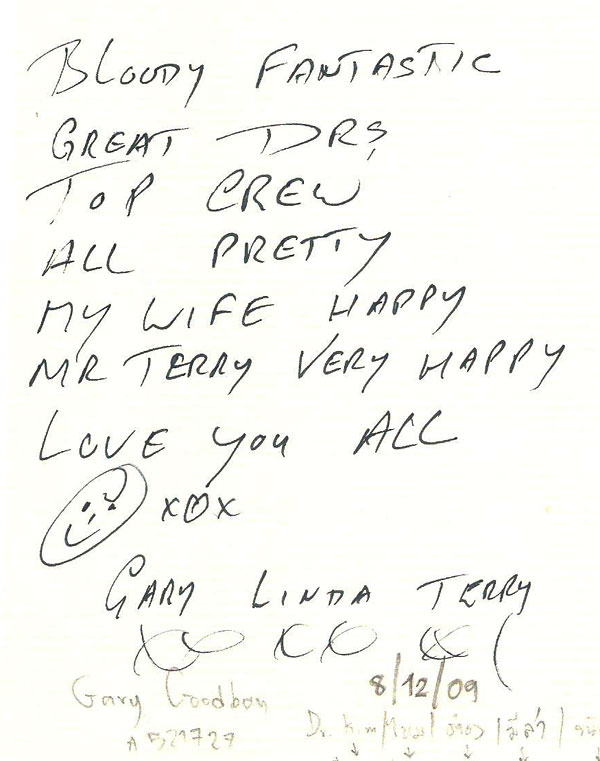 BLOODY FANTASTIC
GREAT DRS
TOP CREW
ALL PRETTY
MY WIFE HAPPY
MR TERRY VERY HAPPY
LOVE YOU ALL
XOX
GARY LINDA TERRY
8/12/09
Gary
Dr.